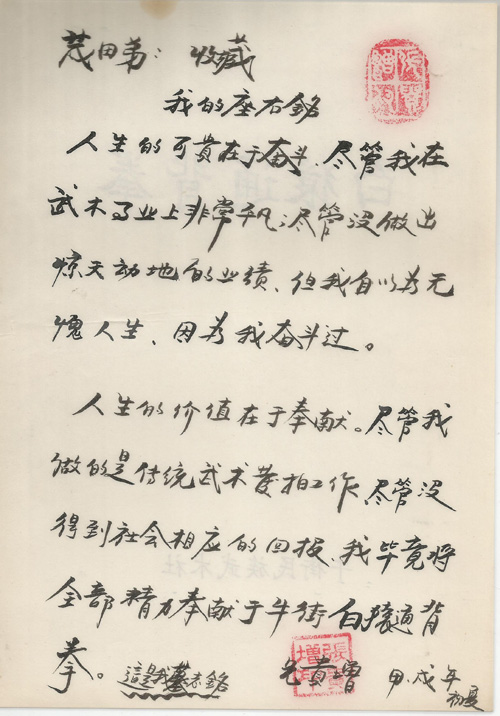 茂田弟： 收藏
我的座右銘
人生的可貴在于奋斗、尽管我在
武术事业上非常平凡；尽管没做出
惊天动地的业绩、但我自以為无
愧人生、因為我奋斗过。
人生的价值在于奉献。尽管我
做的是传统武术工作、尽管没
得到社会相应的回报、我毕竟将
全部精力奉献于牛街白猿通背
拳。 這是我墓志銘 兄貴增 甲戌年
初夏